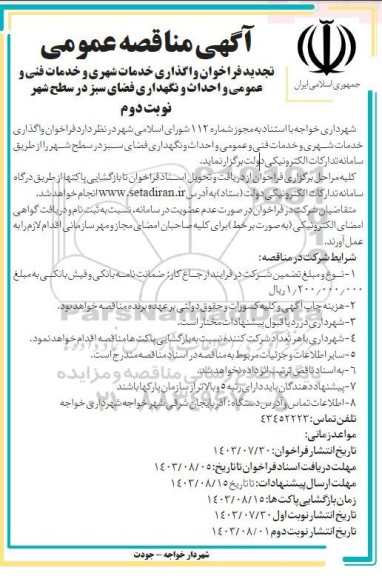 جمهوری اسلامی ایران
آگهی مناقصه عمومی
تجدید فراخوان واگذاری خدمات شهری و خدمات فنی و
عمومی و احداث و نگهداری فضای سبز در سطح شهر
نوبت دوم
شهرداری خواجه با استناد به مجوز شماره ۱۱۲ شورای اسلامی شهر در نظر دارد فراخوان واگذاری
خدمات شهری و خدمات فنی و عمومی و احداث و نگهداری فضای سبز در سطح شهر را از طریق
سامانه تدارکات الکترونیکی دولت برگزار نماید.
کلیه مراحل برگزاری فراخوان از دریافت و تحویل اسناد فراخوان تا بازگشایی پاکتها از طریق درگاه
سامانه تدارکات الکترونیکی دولت (ستاد) به آدرس www.setadiran.ir انجام خواهد شد.
متقاضیان شرکت در فراخوان در صورت عدم عضویت در سامانه، نسبت به ثبت نام و دریافت گواهی
امضای الکترونیکی (به صورت بر خط) برای کلیه صاحبان امضای مجاز و مهر سازمانی اقدام لازم را به
عمل آورند.
شرایط شرکت در مناقصه:
۱- نوع و مبلغ تضمین شرکت در فرایند ارجاع کار: ضمانت نامه بانکی و فیش بانکی به مبلغ
۱/۲۰۰/۰۰۰/۰۰۰ ریال
۲- هزینه چاپ آگهی و کلیه کسورات و حقوق دولتی بر عهده برنده مناقصه خواهد بود.
۳- شهرداری در رد یا قبول پیشنهادات مختار است.
۴- شهرداری با هر تعداد شرکت کننده نسبت به بازگشایی پاکت ها مناقصه اقدام خواهد نمود.
۵- سایر اطلاعات و جزئیات مربوط به مناقصه در اسناد مناقصه مندرج است.
۶- به اسناد ناقص ترتیب اثر داده نخواهد شد.
۷- پیشنهاد دهندگان باید دارای رتبه ۵ و بالاتر از سازمان پارکها باشند
۸- اطلاعات تماس و آدرس دستگاه : آذربایجان شرقی شهر خواجه شهرداری خواجه
تلفن تماس: ۴۳۴۵۲۲۲۳
مواعد زمانی:
تاریخ انتشار فراخوان: ۱۴۰۳/۰۷/۳۰
مهلت دریافت اسناد فراخوان تا تاریخ: ۱۴۰۳/۰۸/۰۵
مهلت ارسال پیشنهادات: تا تاریخ ۱۴۰۳/۰۸/۱۵
زمان بازگشایی پاکت ها: ۱۴۰۳/۰۸/۱۵
تاریخ انتشار نوبت اول ۱۴۰۳/۰۷/۳۰
تاریخ انتشار نوبت دوم ۱۴۰۳/۰۸/۰۱
شهردار خواجه – جودت